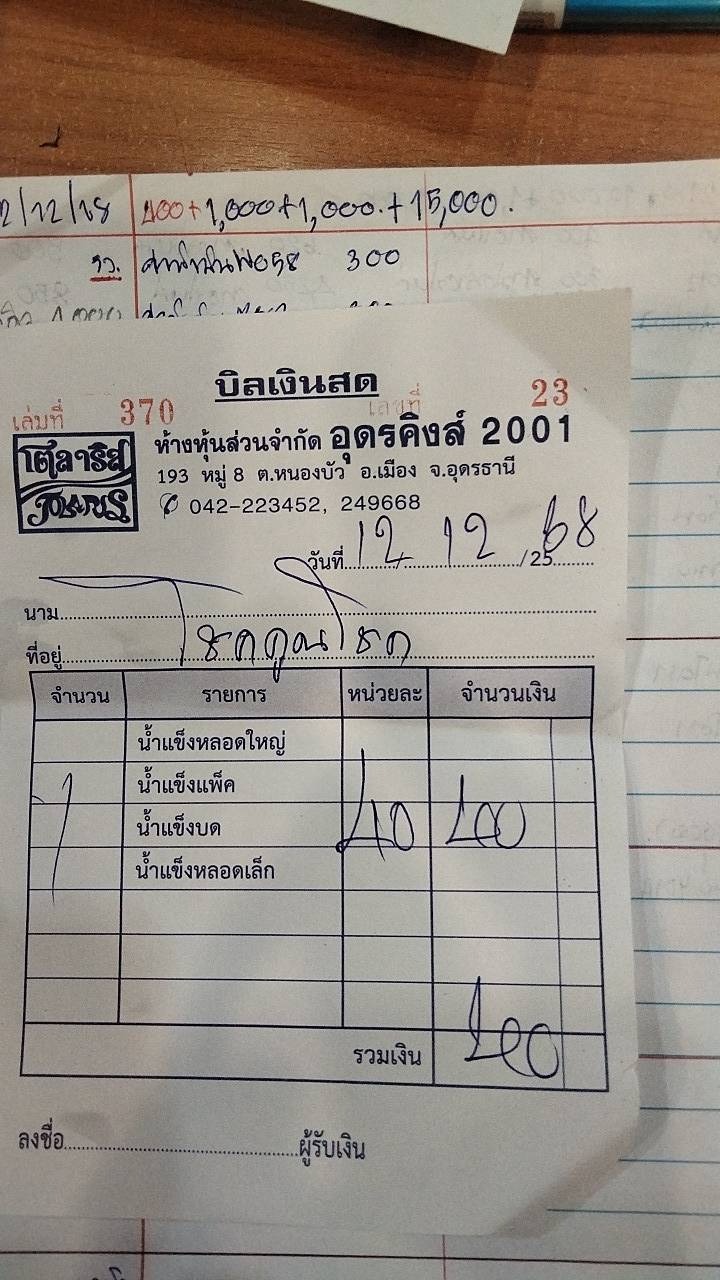 2/12/68 400+1,000+1,000.+15,000.
300
บิลเงินสด
เล่มที่ 370 เลขที่ 23
ห้างหุ้นส่วนจำกัด อุดรคิงส์ 2001
193 หมู่ 8 ต.หนองบัว อ.เมือง จ.อุดรธานี
042-223452, 249668
วันที่ 12 12 /25 68
นาม
ที่อยู่ โชคคูณโชค
จำนวน รายการ หน่วยละ จำนวนเงิน
น้ำแข็งหลอดใหญ่
น้ำแข็งแพ็ค
1 น้ำแข็งบด 40
น้ำแข็งหลอดเล็ก
รวมเงิน
ลงชื่อ ผู้รับเงิน